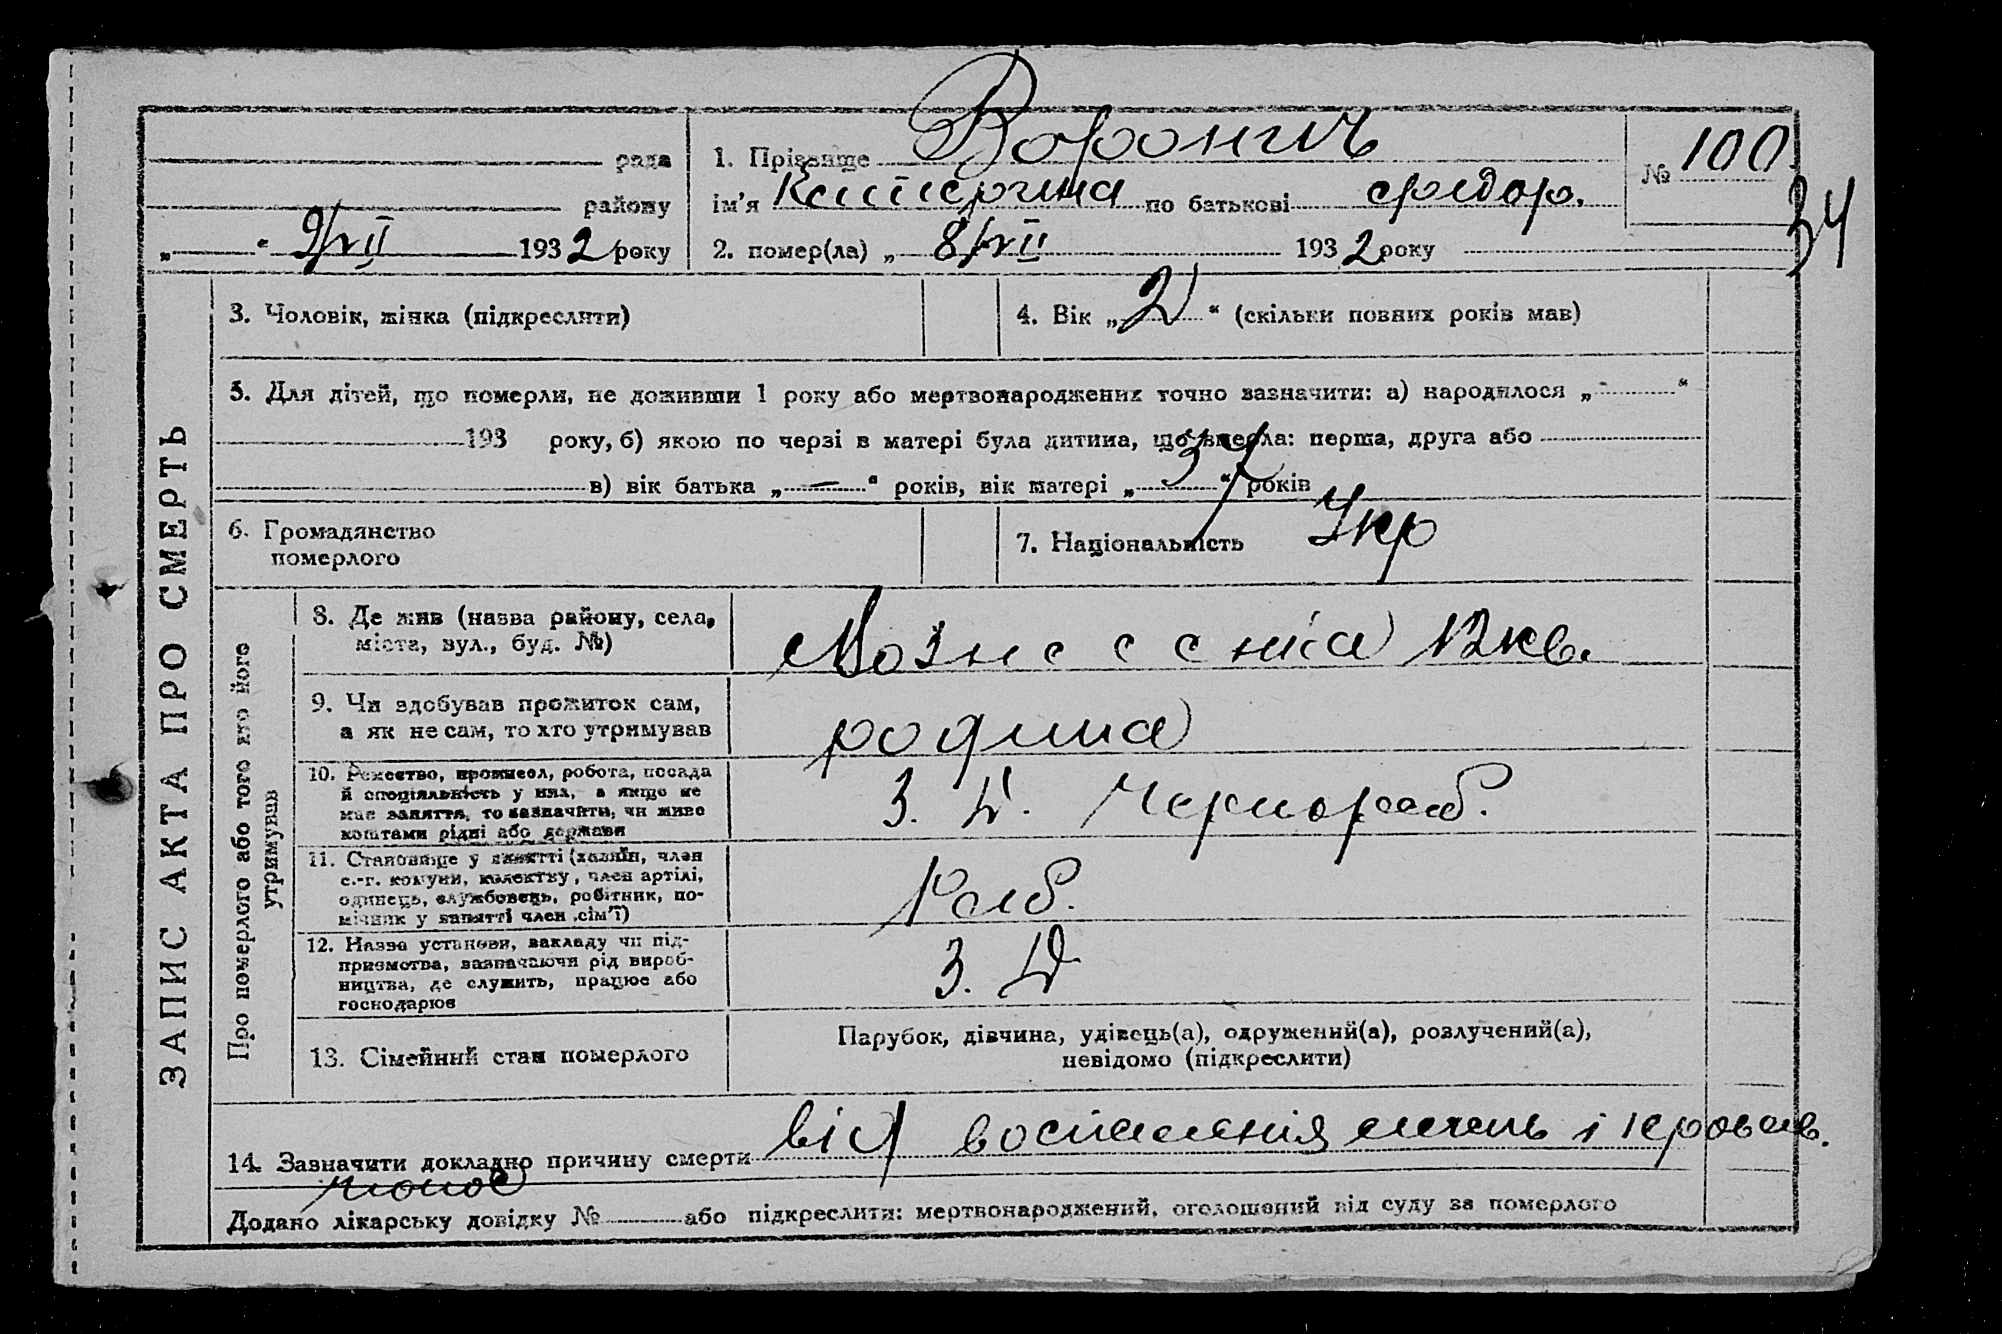 ЗАПИС АКТА ПРО СМЕРТЬ
рада
району
„ “ 9/VII 1932 року
1. Прізвище Воронич
ім'я Катерина по батькові Федор.
2. помер(ла) „ 8/VII 1932 року
№ 100.
34
3. Чоловік, жінка (підкреслити)
4. Вік „ 2 “ (скільки повних років мав)
5. Для дітей, що померли, не доживши 1 року або мертвонароджених точно зазначити: а) народилося „ - “
193 року, б) якою по черзі в матері була дитина, що вмерла: перша, друга або
в) вік батька „ — “ років, вік матері „ 37 “ років
6. Громадянство
померлого
7. Національність Укр
Про померлого або того хто його
утримував
8. Де жив (назва району, села,
міста, вул., буд. №)
Вознесенка 12 кв.
9. Чи здобував прожиток сам,
а як не сам, то хто утримував
родина
10. Ремество, промисел, робота, посада
й спеціяльність у них, а якщо не
мав заняття, то зазначити, чи живе
коштами рідні або держави
З. Д. Чернораб.
11. Становище у занятті (хазяїн, член
с.-г. комуни, колективу, член артілі,
одинець, службовець, робітник, по-
мічник у занятті член сім'ї)
Раб.
12. Назва установи, закладу чи під-
приємства, зазначаючи рід вироб-
ництва, де служить, працює або
господарює
З. Д
13. Сімейний стан померлого
Парубок, дівчина, удівець(а), одружений(а), розлучений(а),
невідомо (підкреслити)
14. Зазначити докладно причину смерти від воспаления і кровав.
понос
Додано лікарську довідку № або підкреслити: мертвонароджений, оголошений від суду за померлого